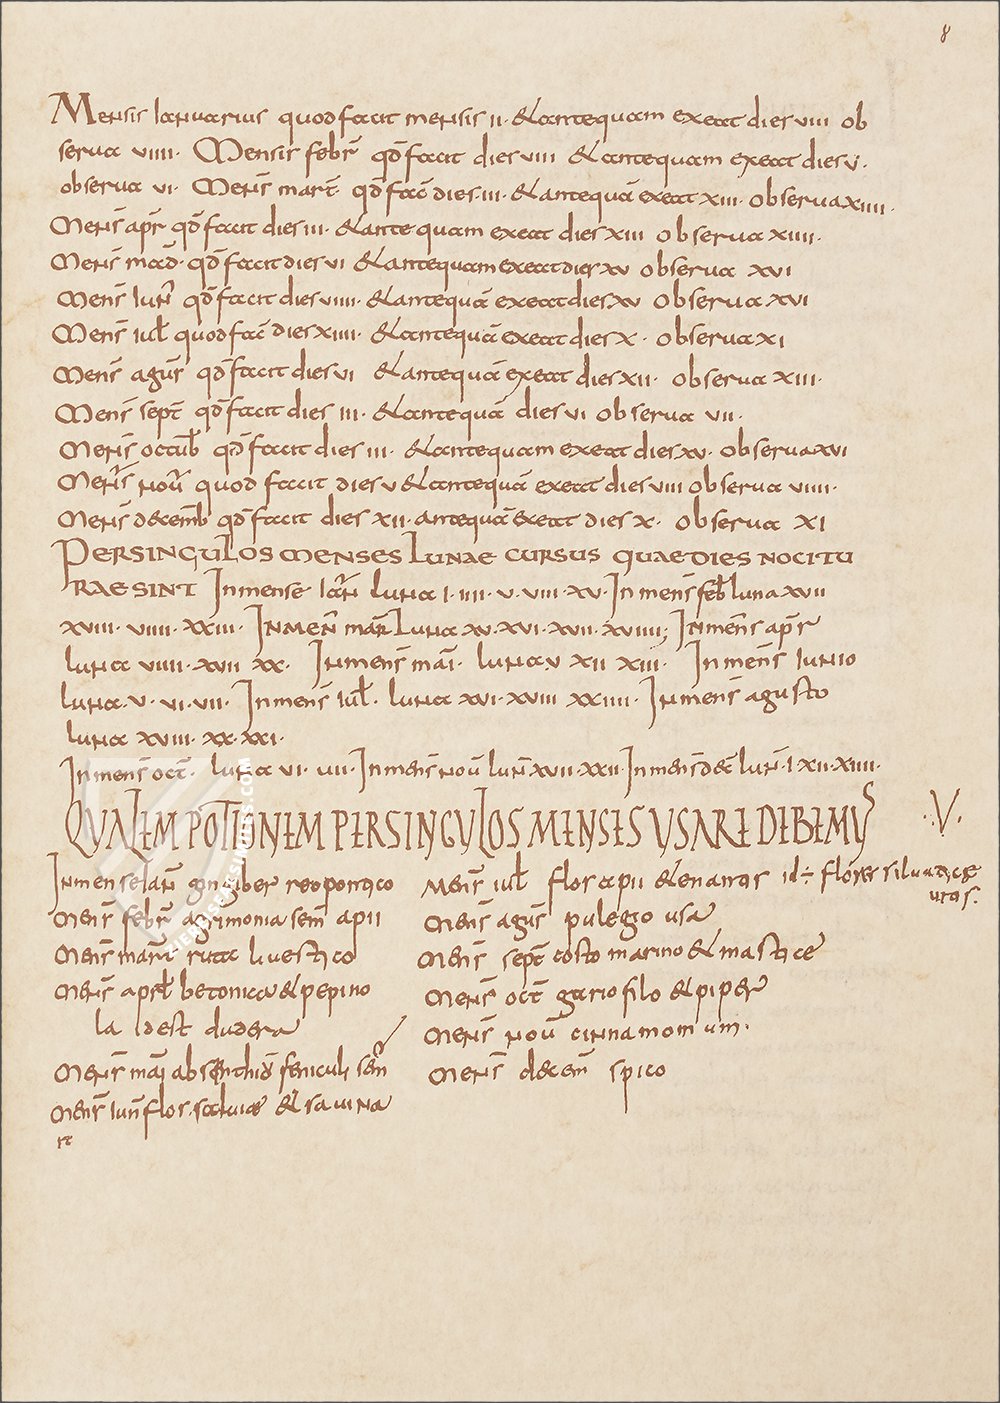 8
Mensis Ianuarius quod facit mensis II· & antequam exeat dies VIII ob
serva VIIII· Mensis febr̄ qd̄ facit dies VIII & antequam exeat dies V·
observa VI· Mens̄ mart̄ qd̄ fac̄ dies·III· & antequā exeat XIII· observa XIIII·
Mens̄ apr̄ qd̄ facit dies III· & antequam exeat dies XIII observa XIIII·
Mens̄ mad̄· qd̄ facit dies VI & antequam exeat dies XV observa XVI
Mens̄ Iun̄ qd̄ facit dies VIIII· & antequā exeat dies XV observa XVI
Mens̄ iul̄ quod fac̄ dies XIIII· & antequā exeat dies X· observa XI
Mens̄ agus̄ qd̄ facit dies VI & antequā exeat dies XII· observa XIII·
Mens̄ sept̄ qd̄ facit dies III· & antequā dies VI observa VII·
Mens̄ octub̄ qd̄ facit dies III· & antequam exeat dies XV· observa XVI
Mens̄ nou̅ quod facit dies V & antequā exeat dies VIII observa VIIII·
Mens̄ decemb̄ qd̄ facit dies XII· antequā exeat dies X· observa XI
PER SINGULOS MENSES LUNAE CURSUS QUAE DIES NOCITU
RAE SINT In mense Ian̄ luna I·IIII·V·VIII·XV· In mens̄ feb̄ luna XVII
XVIII·VIIII·XXIII· IN MEN̄ mar̄ Luna XV·XVI·XVII·XVIIII; In mens̄ apr̄
luna VIIII·XVII XX· In mens̄ mai· luna V XII XIII· In mens̄ Iunio
luna·V·VI·VII· In mens̄ iul̄· luna XVI·XVIII XXIIII· In mens̄ agusto
luna XVIII·XX·XXI·
In mens̄ oct̄· luna VI·VII· In mens̄ nou̅ lun̄ XVII·XXII· In mens̄ dec̄ lun̄·I XII·XIIII·
QUALEM POTIONEM PER SINGULOS MENSES USARE DEBEMUS ·V·
In mense Ian̄ gingiber reopontico
Mens̄ febr̄ agrimonia sem̄ apii
Mens̄ mar̄ ruta livestico
Mens̄ aprl̄ betonica & pepino
la idest dudera
Mens̄ mai absenthiū feniculi sēn
Mens̄ iun̄ flor·salviae & savina
Mens̄ iul̄ flos apii & enantis id÷ flores silvatice
uvas·
Mens̄ agus̄ pulegio usar
Mens̄ sept̄ costo marino & mastice
Mens̄ oct̄ gariofilo & piper
Mens̄ nou̅ cinnamomum·
Mens̄ decem̄ spico